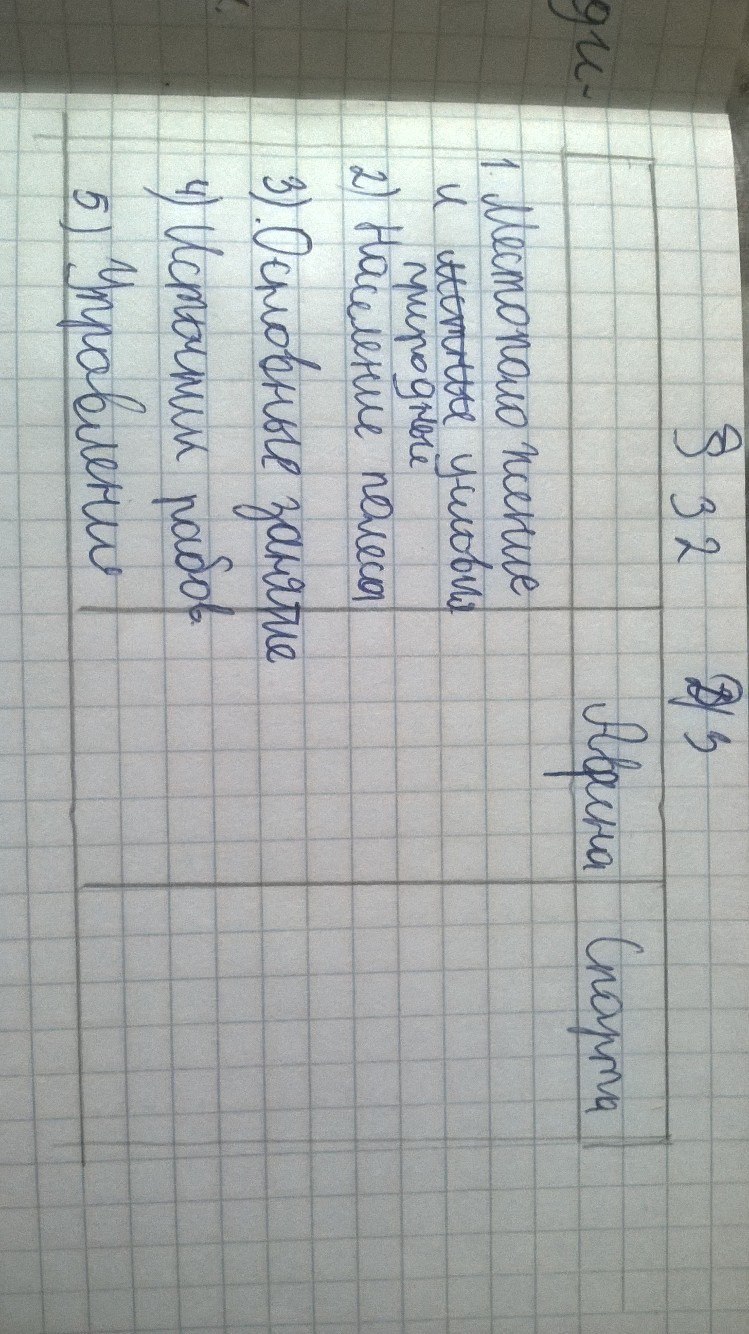 § 32 Д/З
Афина Спарта
1. Местоположение
и условия
природные
2) Население полеса
3) Основные занятие
4) Источники рабов
5) Управление
ди-